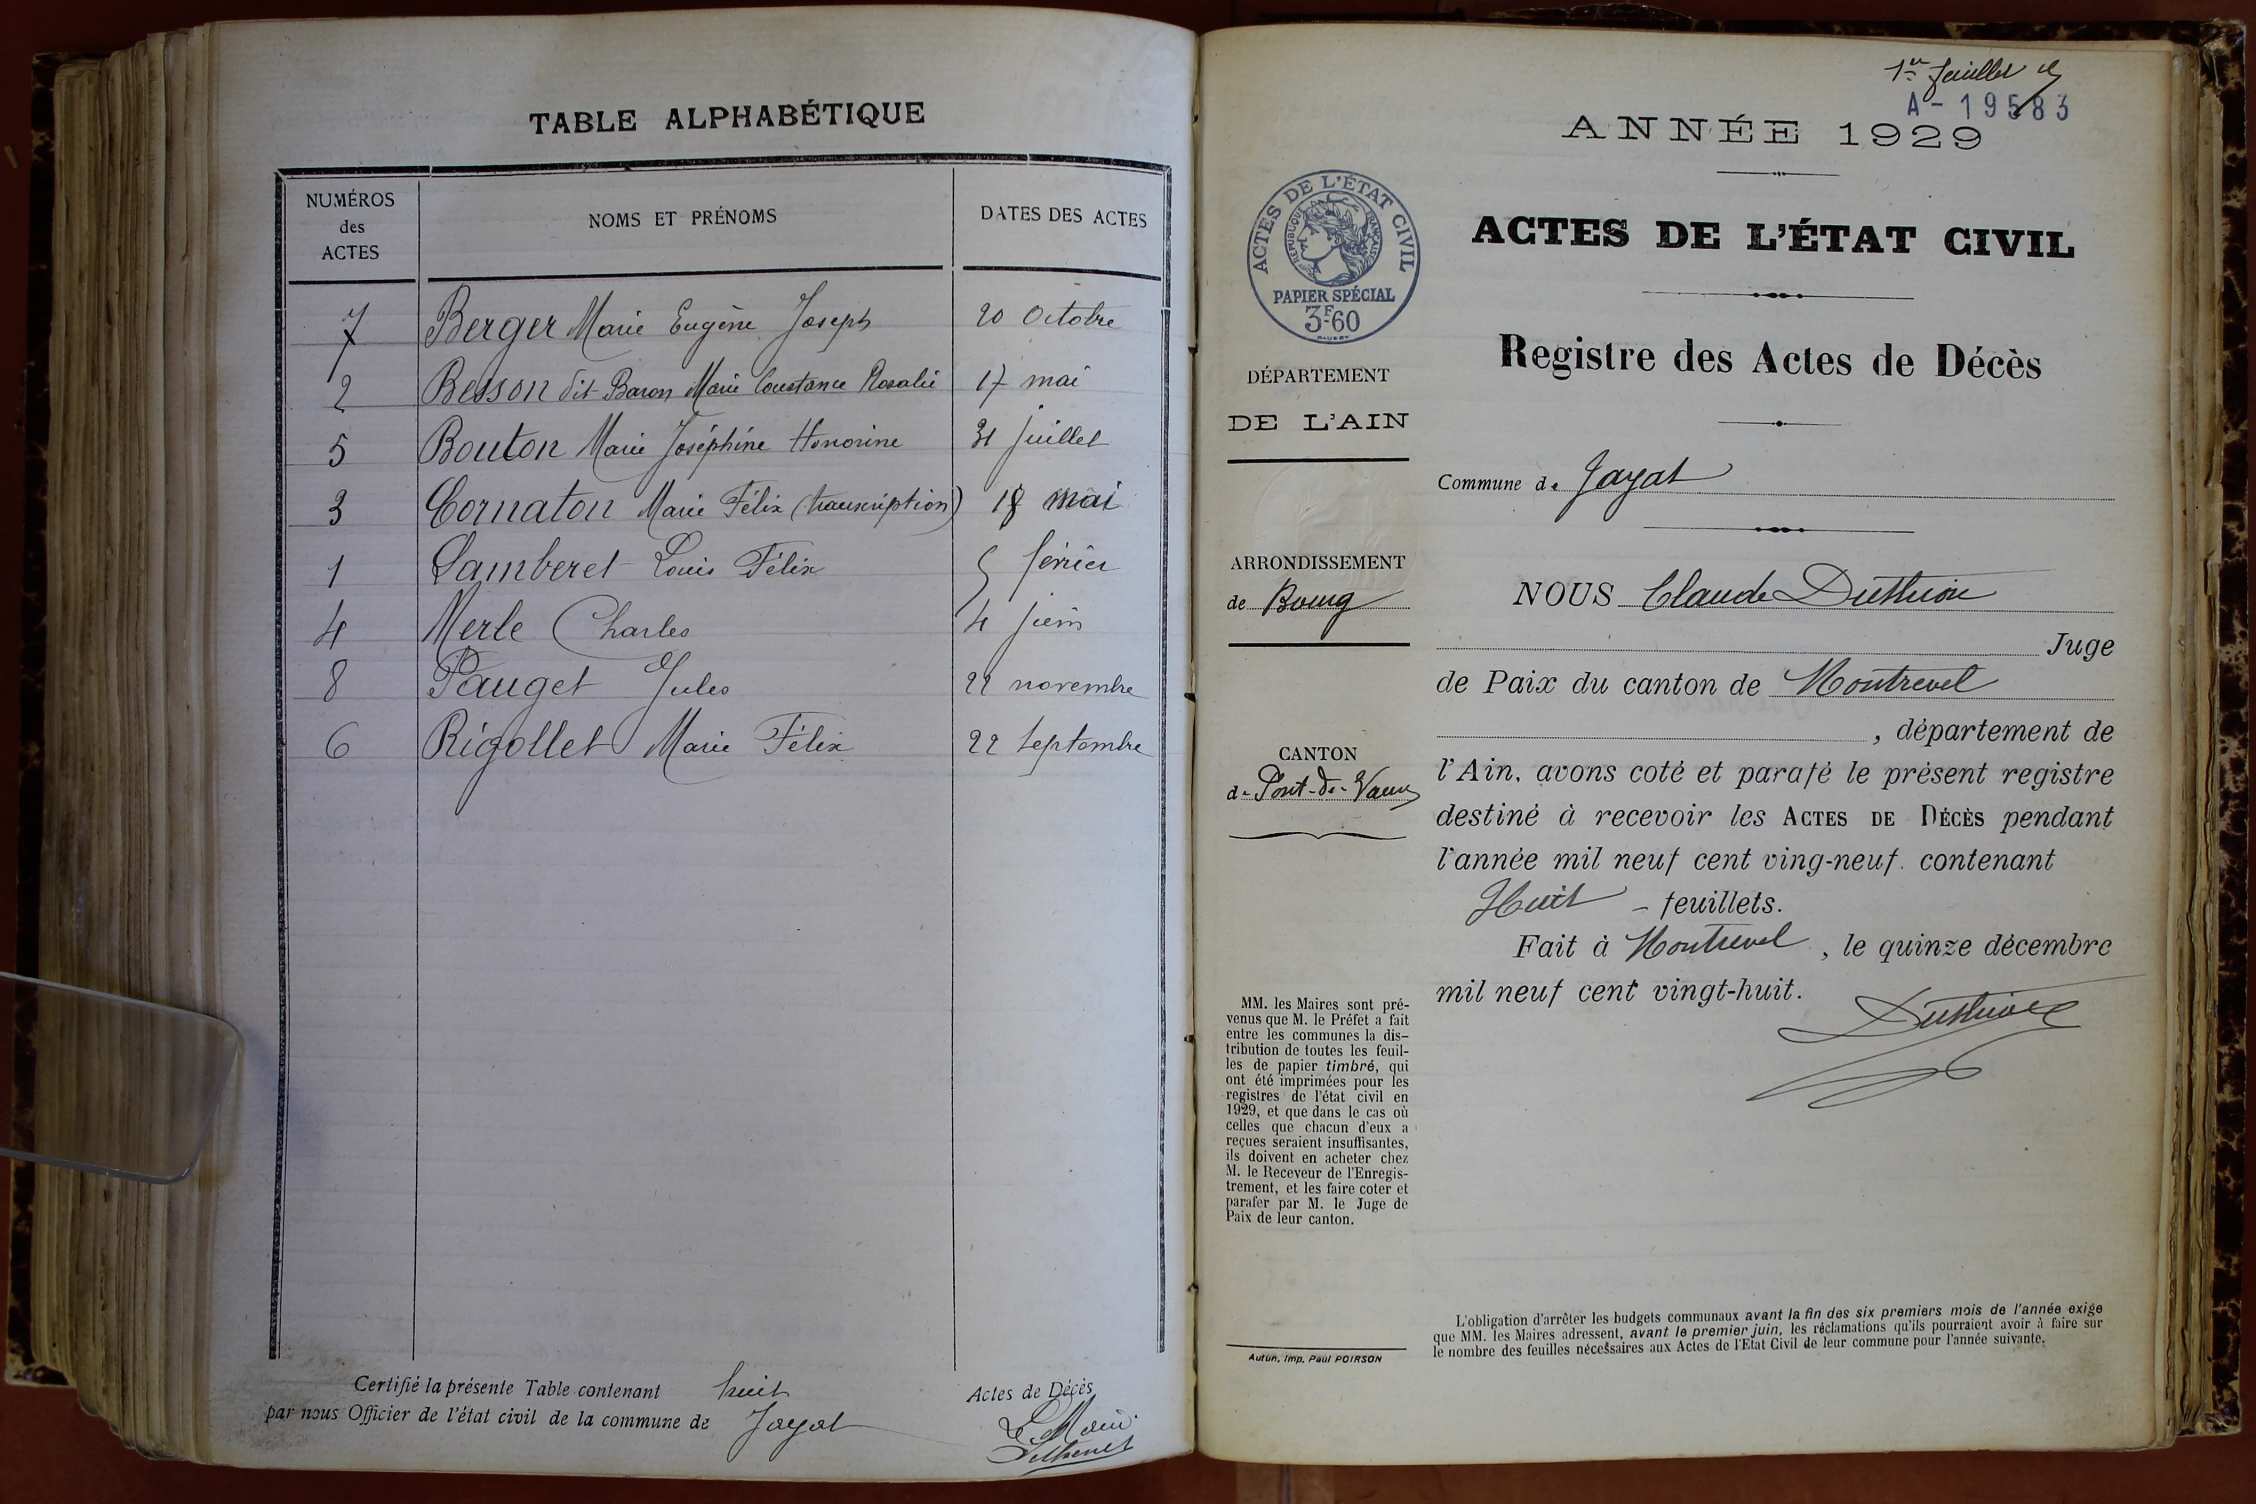 TABLE ALPHABÉTIQUE
NUMÉROS des ACTES
NOMS ET PRÉNOMS
DATES DES ACTES
7 Berger Marie Eugène Joseph 20 Octobre
2 Besson dit Baron Marie Constance Rosalie 17 mai
5 Bouton Marie Joséphine Honorine 31 juillet
3 Cornaton Marie Félix (transcription) 18 mai
1 Lamberet Louis Félix 5 février
4 Merle Charles 4 juin
8 Pauget Jules 22 novembre
6 Rigollet Marie Félix 22 septembre
Certifié la présente Table contenant huit Actes de Décès
par nous Officier de l'état civil de la commune de Jayat
Le Maire
1er feuillet
A-19583
ANNÉE 1929
ACTES DE L'ÉTAT CIVIL
RÉPUBLIQUE FRANÇAISE
PAPIER SPÉCIAL
3F60
ACTES DE L'ÉTAT CIVIL
Registre des Actes de Décès
DÉPARTEMENT
DE L'AIN
ARRONDISSEMENT
de Bourg
CANTON
de Pont-de-Vaux
MM. les Maires sont pré-
venus que M. le Préfet a fait
entre les communes la dis-
tribution de toutes les feuil-
les de papier timbré, qui
ont été imprimées pour les
registres de l'état civil en
1929, et que dans le cas où
celles que chacun d'eux a
reçues seraient insuffisantes,
ils doivent en acheter chez
M. le Receveur de l'Enregis-
trement, et les faire coter et
parafer par M. le Juge de
Paix de leur canton.
Autun, Imp. Paul POIRSON
Commune de Jayat
NOUS Claude Duthion
Juge
de Paix du canton de Montrevel
, département de
l'Ain, avons coté et parafé le présent registre
destiné à recevoir les ACTES DE DÉCÈS pendant
l'année mil neuf cent ving-neuf. contenant
Huit - feuillets.
Fait à Montrevel, le quinze décembre
mil neuf cent vingt-huit.
Duthion
L'obligation d'arrêter les budgets communaux avant la fin des six premiers mois de l'année exige
que MM. les Maires adressent, avant le premier juin, les réclamations qu'ils pourraient avoir à faire sur
le nombre des feuilles nécessaires aux Actes de l'Etat Civil de leur commune pour l'année suivante.